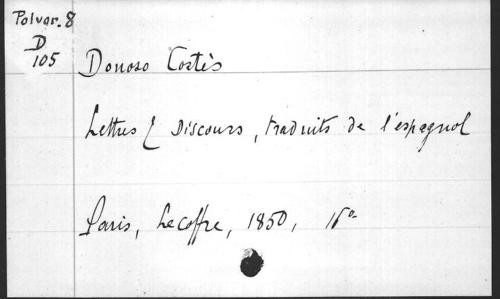 Polvar. 8
D
105
Donoso Cortès
Lettres & Discours, traduits de l'espagnol
Paris, Lecoffre, 1850, 16°